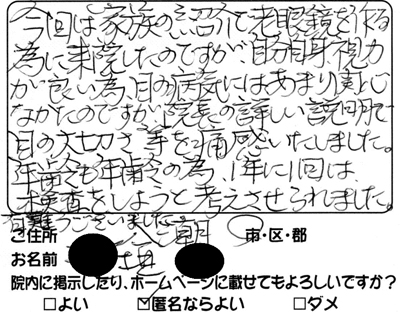 今回は家族の紹介で老眼鏡を作る
為に来院したのですが、自分自身、視力
が良い為、目の病気にはあまり実感
なかったのですが、院長の詳しい説明で
目の大切さ等を痛感いたしました。
年齢も年齢の為、1年に1回は
検査をしようと考えさせられました。
有難うございました。
ご住所 市・区・郡
お名前
院内に掲示したり、ホームページに載せてもよろしいですか?
□よい ☑匿名ならよい □ダメ